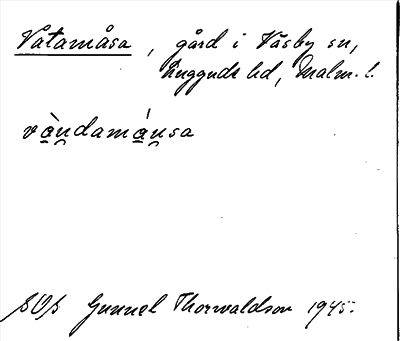 Vatamåsa, gård i Väsby sn,
Luggude hd, Malm. l.
và̱u̯damá̱u̯sa
SOS Gunnel Thorvaldson 1945.